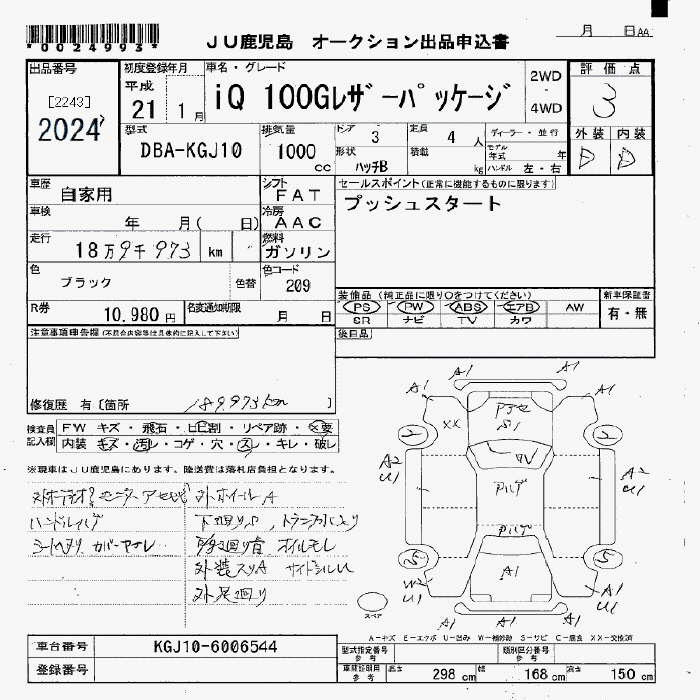 *0024993*
JU鹿児島 オークション出品申込書
月 日AA
出品番号
[2243]
2024
初度登録年月
平成
21 1月
車名・グレード
iQ 100Gレザーパッケージ
2WD
・
4WD
評価点
3
外装 内装
D D
型式
DBA-KGJ10
排気量
1000
cc
ドア 3
定員 4 人
形状 ハッチB
積載 kg
ディーラー・並行
モデル年式 年
ハンドル 左・右
車歴
自家用
シフト
FAT
セールスポイント(正常に機能するものに限ります)
プッシュスタート
車検
年 月( 日)
冷房
AAC
走行
18万9千973 km
燃料
ガソリン
色
ブラック
色替
色コード
209
装備品(純正品に限り○をつけてください)
PS PW ABS エアB AW
SR ナビ TV カワ
新車保証書
有・無
R券
10,980円
名変通知期限
月 日
後日品
注意事項申告欄(不具合内容等は具体的に記入して下さい)
修復歴 有〔箇所 189,973km 〕
検査員記入欄
FW キズ・飛石・ヒビ割・リペア跡・×要
内装 キズ・汚レ・コゲ・穴・スレ・キレ・破レ
※現車はJU鹿児島にあります。陸送費は落札店負担となります。
外ホイールA
ハンドル
シート カバー
オイルモレ
外装スリA サイドシルU
A1 A1
A1 A1
XX
2 2
A2 U1
A2 U1
A1
W2 U1
A1 U1
A1 A1
スペア
A-キズ E-エクボ U-凹み W-補修跡 S-サビ C-腐食 XX-交換済
車台番号
KGJ10-6006544
登録番号
型式指定番号
参考
類別区分番号
参考
車検証明用
参考
長さ 298 cm
幅 168 cm
高さ 150 cm